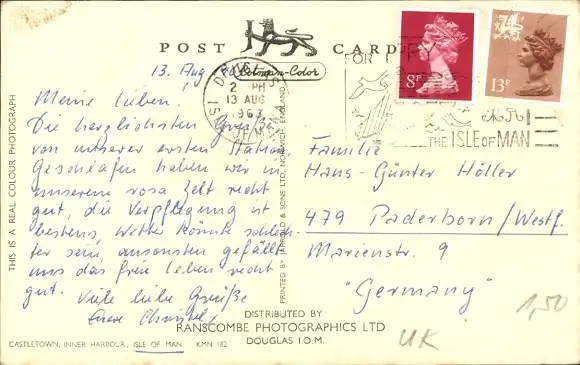 POST CARD
Cotman-Color
13. Aug.
DOUGLAS
2 - PM
13 AUG
1963
ISLE OF MAN
FOR
8P
13P
THE ISLE of MAN
Meine Lieben.
Die herzlichsten Grüße
von unserer ersten Station.
Geschlafen haben wir in
unserem rosa Zelt recht
gut, die Verpflegung ist
bestens, Wetter könnte schlech-
ter sein, ansonsten gefällt
uns das freie Leben recht
gut. Viele liebe Grüße
Eure Christel
Familie
Hans-Günter Höller
479 Paderborn/Westf.
Marienstr. 9
"Germany"
1,50
UK
THIS IS A REAL COLOUR PHOTOGRAPH
PRINTED BY JARROLD & SONS LTD, NORWICH, ENGLAND
DISTRIBUTED BY
RANSCOMBE PHOTOGRAPHICS LTD
DOUGLAS I.O.M.
CASTLETOWN, INNER HARBOUR, ISLE OF MAN KMN 182